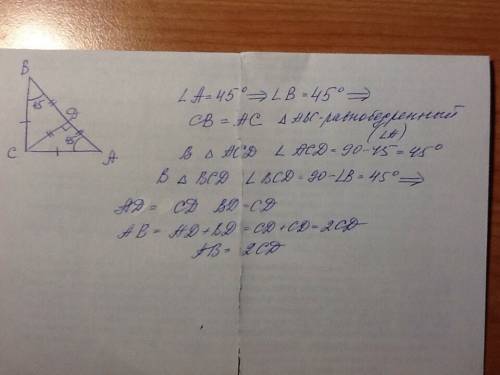 B
45
D
C
45
A
∠A=45° ⇒ ∠B=45° ⇒
CB = AC △ABC-равнобедренный
(∠A)
В △ ACD ∠ACD=90-45=45°
В △ BCD ∠BCD=90-∠B=45° ⇒
AD = CD BD=CD
AB = AD+BD=CD+CD=2CD
AB = 2CD